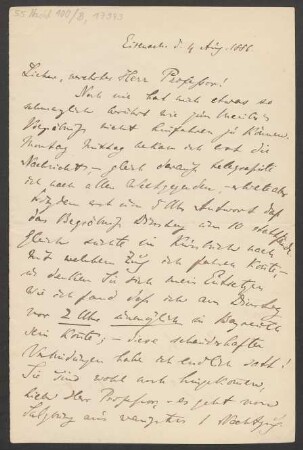 Eisenach d. 4 Aug. 1886
Lieber, verehrter Herr Professor!
Noch nie hat mich etwas so
schmerzlich berührt wie zum Meisters
Begräbniß nicht hinfahren zu können.
Montag Mittag bekam ich erst die
Nachricht, – gleich darauf telegrafirte
ich nach allen Weltgegenden, – erhielt aber
erst um 5 Uhr Antwort daß
das Begräbniß Dienstag um 10 stattfände.
Gleich suchte im Kursbuche nach
mit welchem Zug ich fahren könnte, –
u. denken Sie sich mein Entsetzen
wie ich fand daß ich am Dienstag
vor 2 Uhr unmöglich in Bayreuth
sein könnte, – diese schauderhaften
Verbindungen habe ich endlich satt!
Sie sind wohl auch hingekommen,
lieber Herr Professor – es geht von
Salzburg aus wenigstens 1 Nachtzug